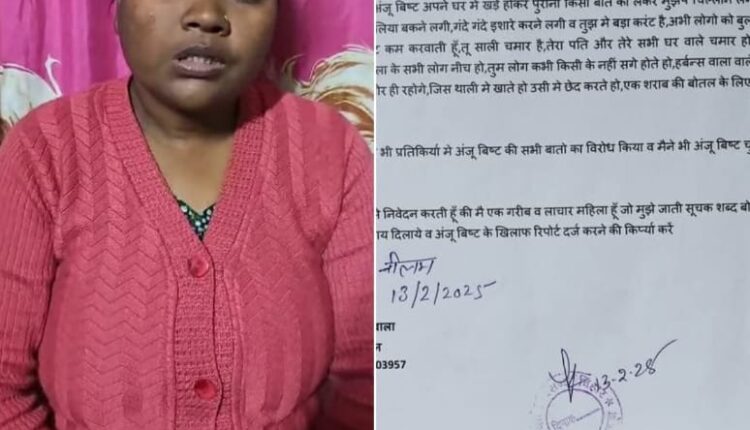 अंजू बिष्ट अपने घर में खड़े होकर पुरानी किसी बात को लेकर मुझपे चिल्लाने
लिया बकने लगी,गंदे गंदे इशारे करने लगी व तुझ मे बड़ा करंट है,अभी लोगो को बुल
कम करवाती हूँ,तू साली चमार है,तेरा पति और तेरे सभी घर वाले चमार हो
ला के सभी लोग नीच हो,तुम लोग कभी किसी के नहीं सगे होते हो,हर्बन्स वाला वाले
ोर ही रहोगे,जिस थाली मे खाते हो उसी मे छेद करते हो,एक शराब की बोतल के लिए
भी प्रतिकिर्या मे अंजू बिष्ट की सभी बातो का विरोध किया व मैने भी अंजू बिष्ट
निवेदन करती हूँ की मै एक गरीब व लाचार महिला हूँ जो मुझे जाती सूचक शब्द बो
ाय दिलाये व अंजू बिष्ट के खिलाफ रिपोर्ट दर्ज करने की किर्प्या करें
नीलम
13/2/2025
वाला
न
03957